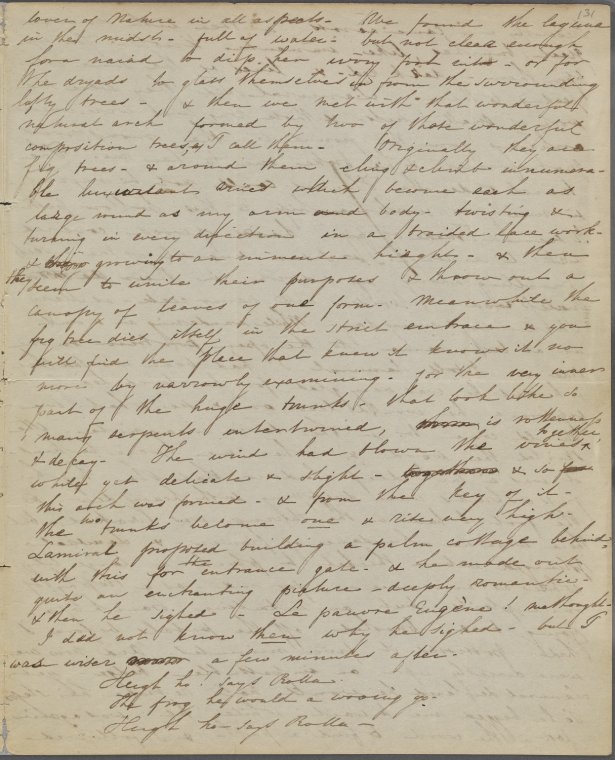 131
lover of Nature in all aspects - We found the laguna
in the midst - full of water - but not clear enough
for a naiad to dip her ivory foot into - or for
the dryads to glass themselves in from the surrounding
lofty trees - & then we met with that wonderful
natural arch formed by two of those wonderful
composition trees, as I call them - Originally they are
fig trees - & around them cling & climb innumera-
ble luxuriant vines which become each as
large round as my arm and body - twisting &
turning in every direction in a braided lace work -
& growing to an immense height - & then
they seem to unite their purposes & throw out a
canopy of leaves of one form. Meanwhile the
fig tree dies itself in the strict embrace & you
will find the place that knew it knows it no
more by narrowly examining - for the very inner
part of the huge trunks - that look like so
many serpents intertwined, is rottenness
& decay - The wind had blown the vines together
while yet delicate & slight - & so
this arch was formed - & from the key of it -
the two trunks become one & rise very high -
Lamiral proposed building a palm cottage behind,
with this for the entrance gate - & he made out
quite an enchanting picture - deeply romantic -
& then he sighed - Le pauvre Eugène! methought -
I did not know then why he sighed - but I
was wiser a few minutes after.
Heigh ho! says Rolla
The frog he would a wooing go.
Heigh ho - says Rolla -